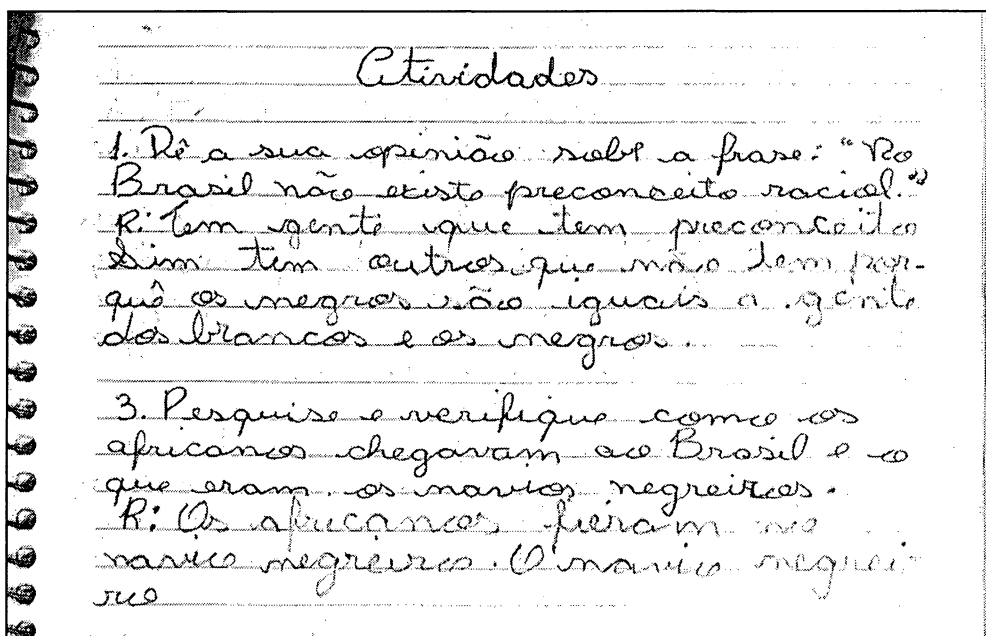 Atividades
1. Dê a sua opinião sobre a frase: "No
Brasil não existe preconceito racial."
R: Tem gente que tem preconceito
sim tem outros que não tem por-
quê os negros são iguais a gente
dos brancos e os negros.
3. Pesquise e verifique como os
africanos chegavam ao Brasil e o
que eram os navios negreiros.
R: Os africanos vieram no
navio negreiro. O navio negrei
ro